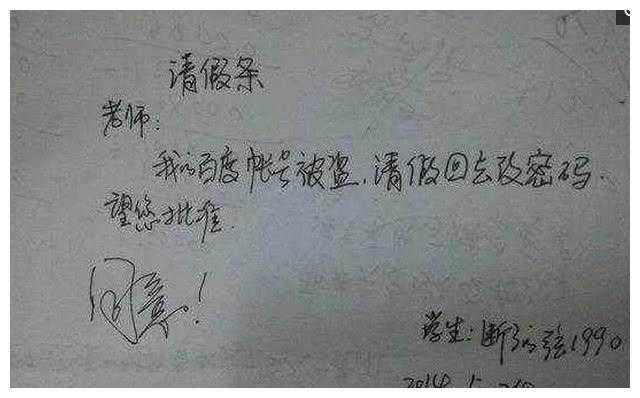 请假条
老师:
我的百度帐号被盗,请假回去改密码.
望您批准.
同意!
学生:断了的弦1990
2014.